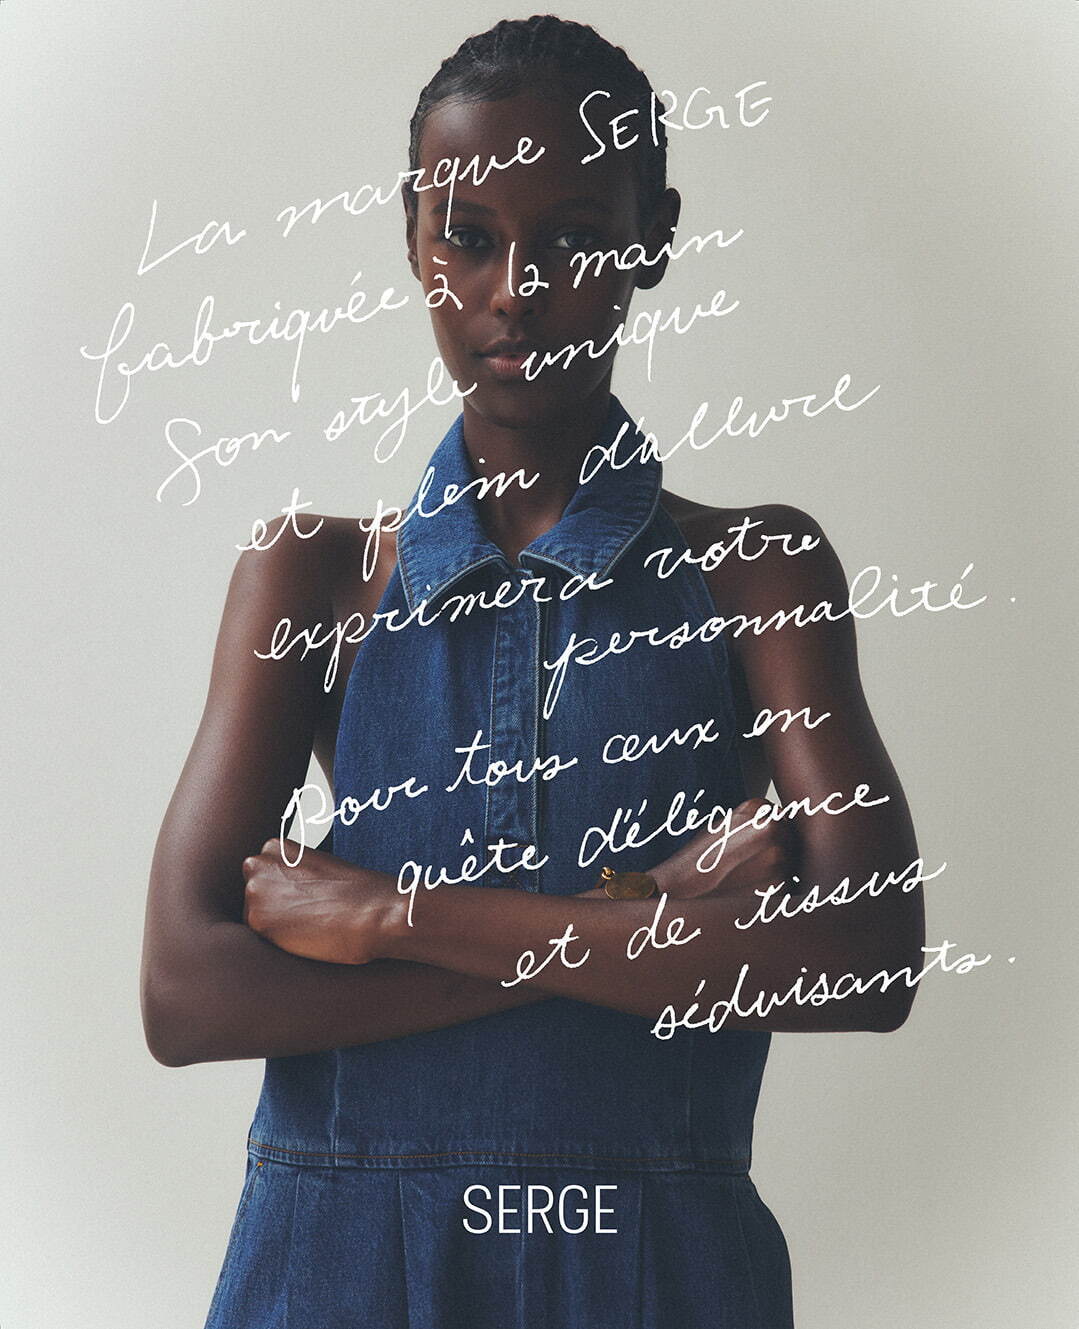 La marque SERGE
fabriquée à la main
Son style unique
et plein d'allure
exprimera votre
personnalité.
pour tous ceux en
quête d'élégance
et de tissus
séduisants.
SERGE